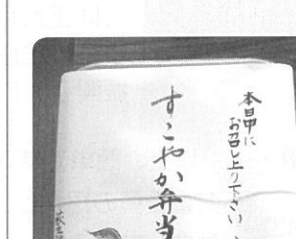 本日中に
お召し上り下さい
すこやか弁当